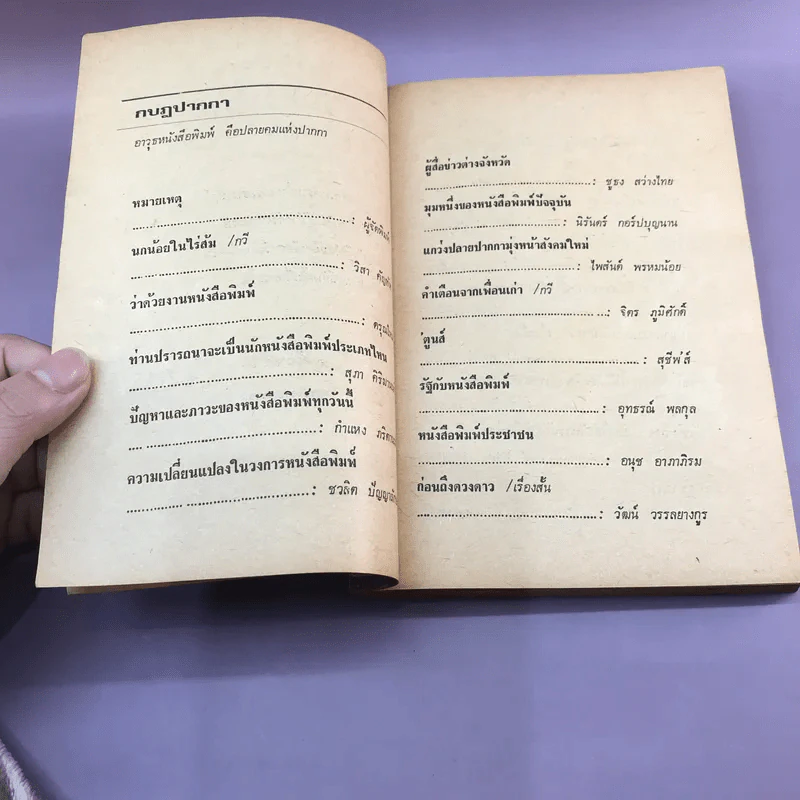 กบฏปากกา
อาวุธหนังสือพิมพ์ คือปลายคมแห่งปากกา
หมายเหตุ
: ผู้จัดพิมพ์
นกน้อยในไร่ส้ม /กวี
: วิสา
ว่าด้วยงานหนังสือพิมพ์
:
ท่านปรารถนาจะเป็นนักหนังสือพิมพ์ประเภทไหน
: สุภา
ปัญหาและภาวะของหนังสือพิมพ์ทุกวันนี้
: กำแหง
ความเปลี่ยนแปลงในวงการหนังสือพิมพ์
: ชวลิต
ผู้สื่อข่าวต่างจังหวัด
: ชูธง สว่างไทย
มุมหนึ่งของหนังสือพิมพ์ปัจจุบัน
: นิรันดร์ กอร์ปบุญนาน
แกว่งปลายปากกามุ่งหน้าสังคมใหม่
: ไพสันต์ พรหมน้อย
คำเตือนจากเพื่อนเก่า /กวี
: จิตร ภูมิศักดิ์
'ตูนส์
: สุชีพ'ส์
รัฐกับหนังสือพิมพ์
: อุทธรณ์ พลกุล
หนังสือพิมพ์ประชาชน
: อนุช อาภาภิรม
ก่อนถึงดวงดาว /เรื่องสั้น
: วัฒน์ วรรลยางกูร